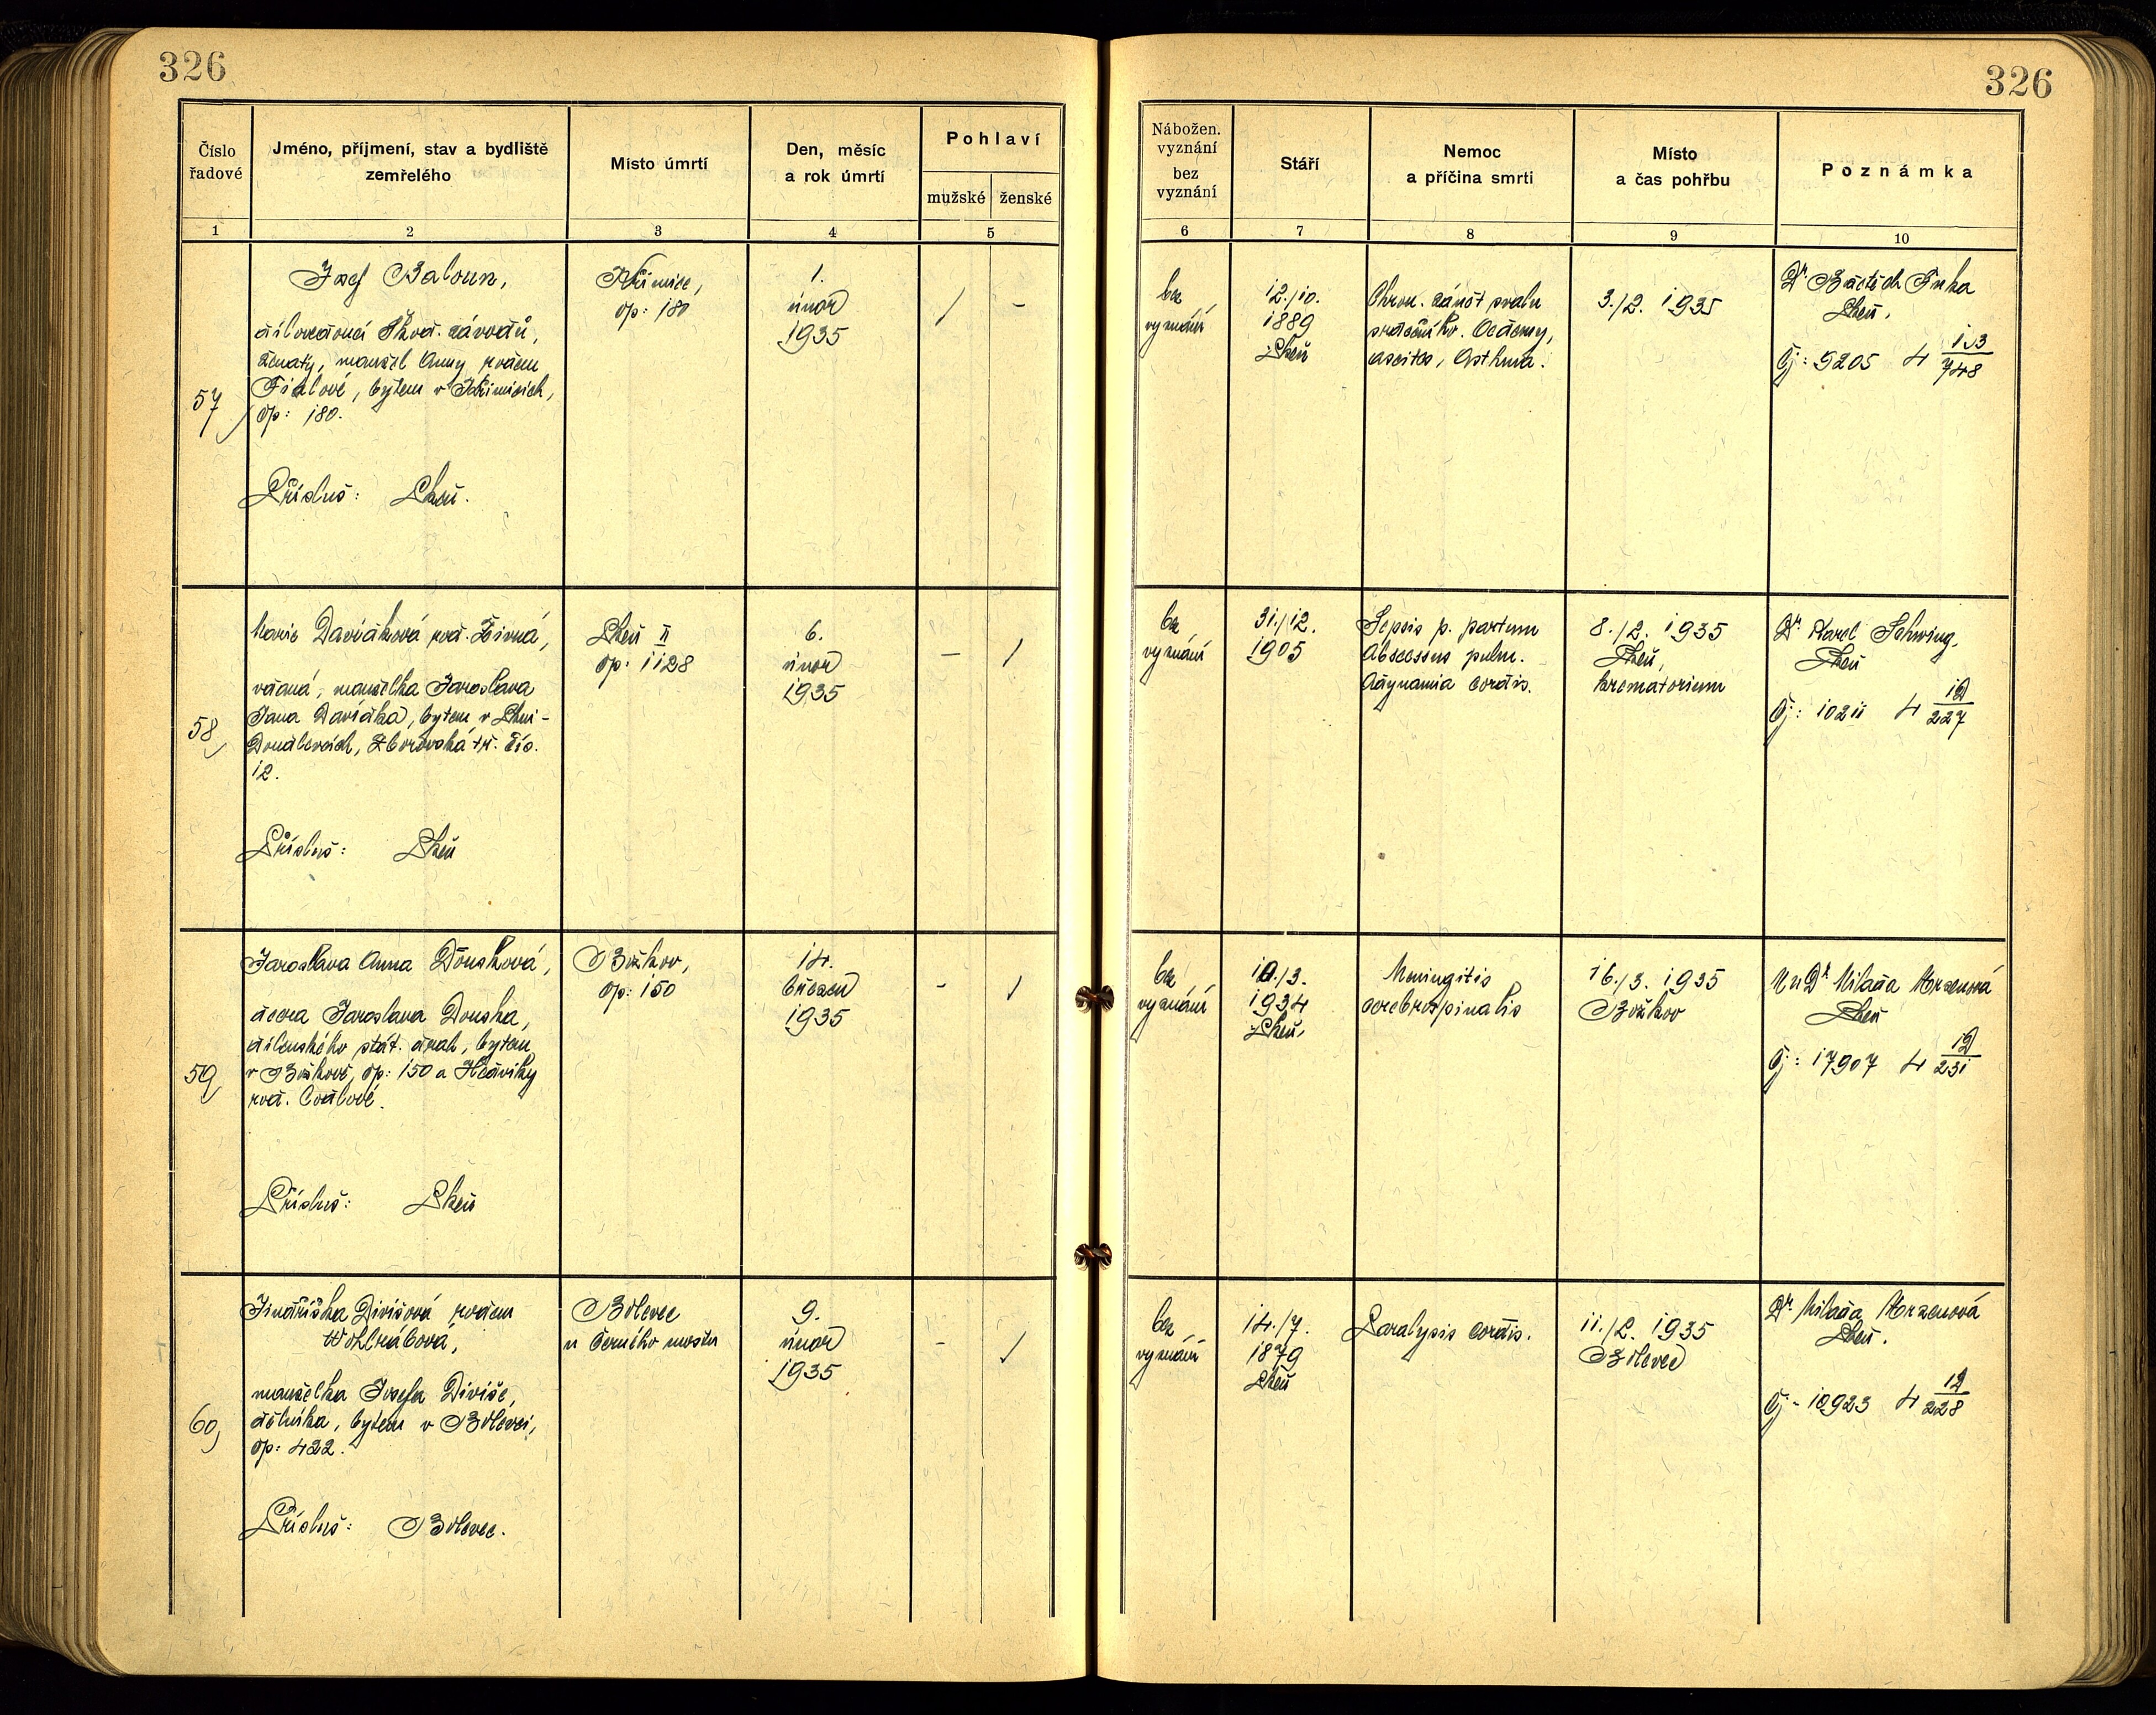 326
326
Číslo řadové
Jméno, příjmení, stav a bydliště zemřelého
Místo úmrtí
Den, měsíc a rok úmrtí
Pohlaví
mužské
ženské
Nábožen. vyznání bez vyznání
Stáří
Nemoc a příčina smrti
Místo a čas pohřbu
Poznámka
1 2 3 4 5 6 7 8 9 10
57
Josef Baloun,
zaměstnanec Škod. závodů,
ženatý, manžel Anny rozen
Fialové, bytem v Křimicích,
čp: 180.
Přísluš: Plzeň.
Křimice,
čp: 180
1.
únor
1935
/ -
bez
vyznání
12./10.
1889
Plzeň
Chron. zánět svalu
srdečního. Oedemy,
ascites, Asthma.
3./2. 1935
Plzeň.
Čj: 5205 4 153/748
58
Marie Daviáková roz. Živná,
vdaná, manželka Jaroslava
Jana Daviáka, bytem v Plzni-
Doudlevcích, Zborovská tř. čís.
12.
Přísluš: Plzeň
Plzeň II
čp: 1128
6.
únor
1935
- /
bez
vyznání
31./12.
1905
Sepsis p. partum
Abscessus pulm.
Adynamia cordis.
8./2. 1935
Plzeň,
krematorium
Dr Karel Schwing.
Plzeň
Čj: 10211 4 12/227
59
Jaroslava Anna Doušková,
dcera Jaroslava Douska,
dílenského stát. drah, bytem
v Božkově, čp: 150 a Hedviky
roz.
Přísluš: Plzeň
Božkov,
čp: 150
14.
březen
1935
- /
bez
vyznání
10./3.
1934
Plzeň,
Meningitis
cerebrospinalis
16./3. 1935
Božkov
MuDr Milada Mrzenová
Plzeň
Čj: 17907 4 12/231
60
Jindřiška Divišová rozen
Wohlrábová,
manželka Josefa Diviše,
dělníka, bytem v Bolevci,
čp: 422.
Přísluš: Bolevec.
Bolevec
u černého mostu
9.
únor
1935
- /
bez
vyznání
14./7.
1879
Plzeň
Paralysis cordis.
11./2. 1935
Bolevec
Dr Milada Mrzenová
Plzeň.
Čj- 10923 4 12/228